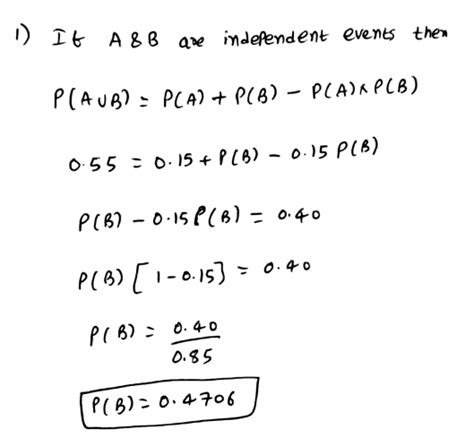 1) If A & B are independent events then
P(A∪B) = P(A) + P(B) - P(A) × P(B)
0.55 = 0.15 + P(B) - 0.15 P(B)
P(B) - 0.15 P(B) = 0.40
P(B) [1-0.15] = 0.40
P(B) = 0.40 / 0.85
P(B) = 0.4706